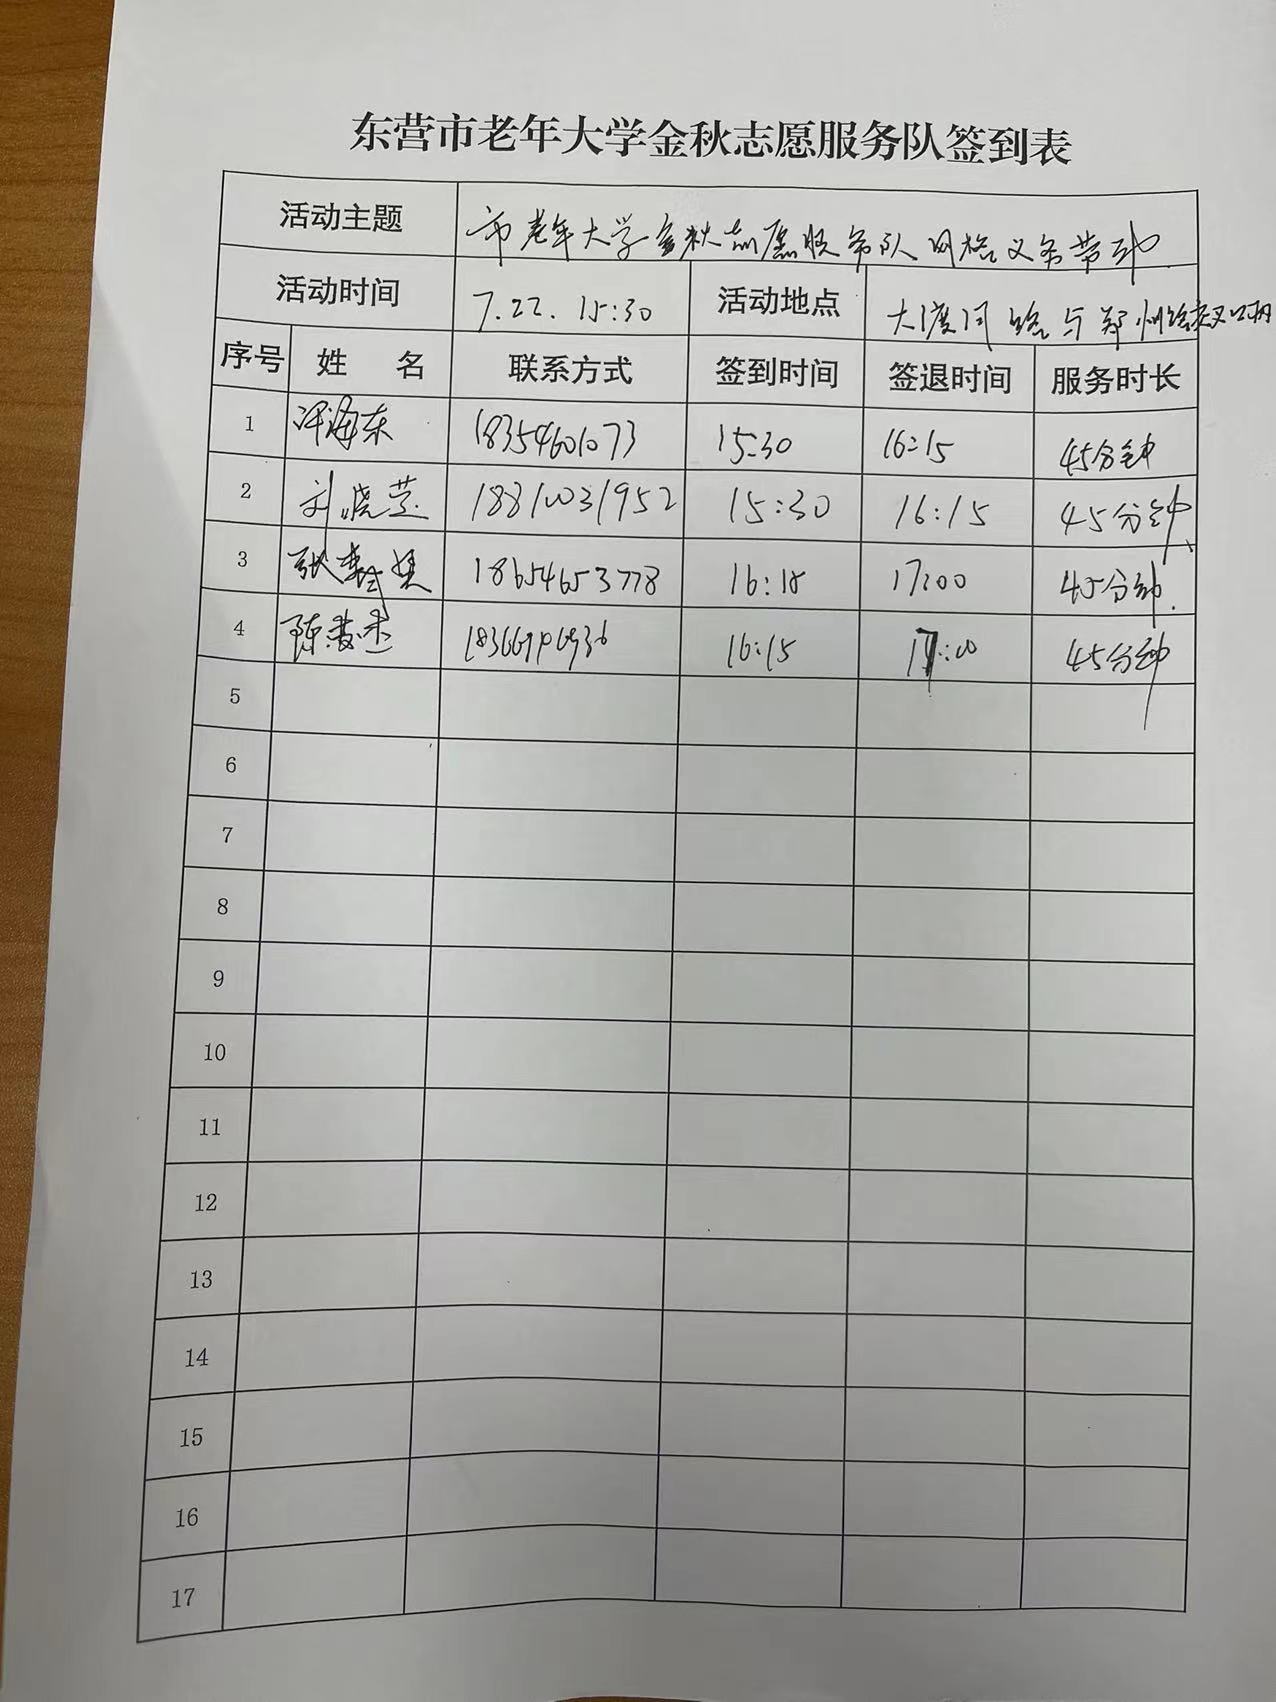 东营市老年大学金秋志愿服务队签到表
活动主题 市老年大学金秋志愿服务队网格义务劳动
活动时间 7.22. 15:30 活动地点 大渡河路与郑州路交叉口
序号 姓 名 联系方式 签到时间 签退时间 服务时长
1 东 18354601073 15:30 16:15 45分钟
2 刘晓芸 18810031952 15:30 16:15 45分钟
3 张 18654653778 16:15 17:00 45分钟
4 陈 16:15 17:00 45分钟
5
6
7
8
9
10
11
12
13
14
15
16
17